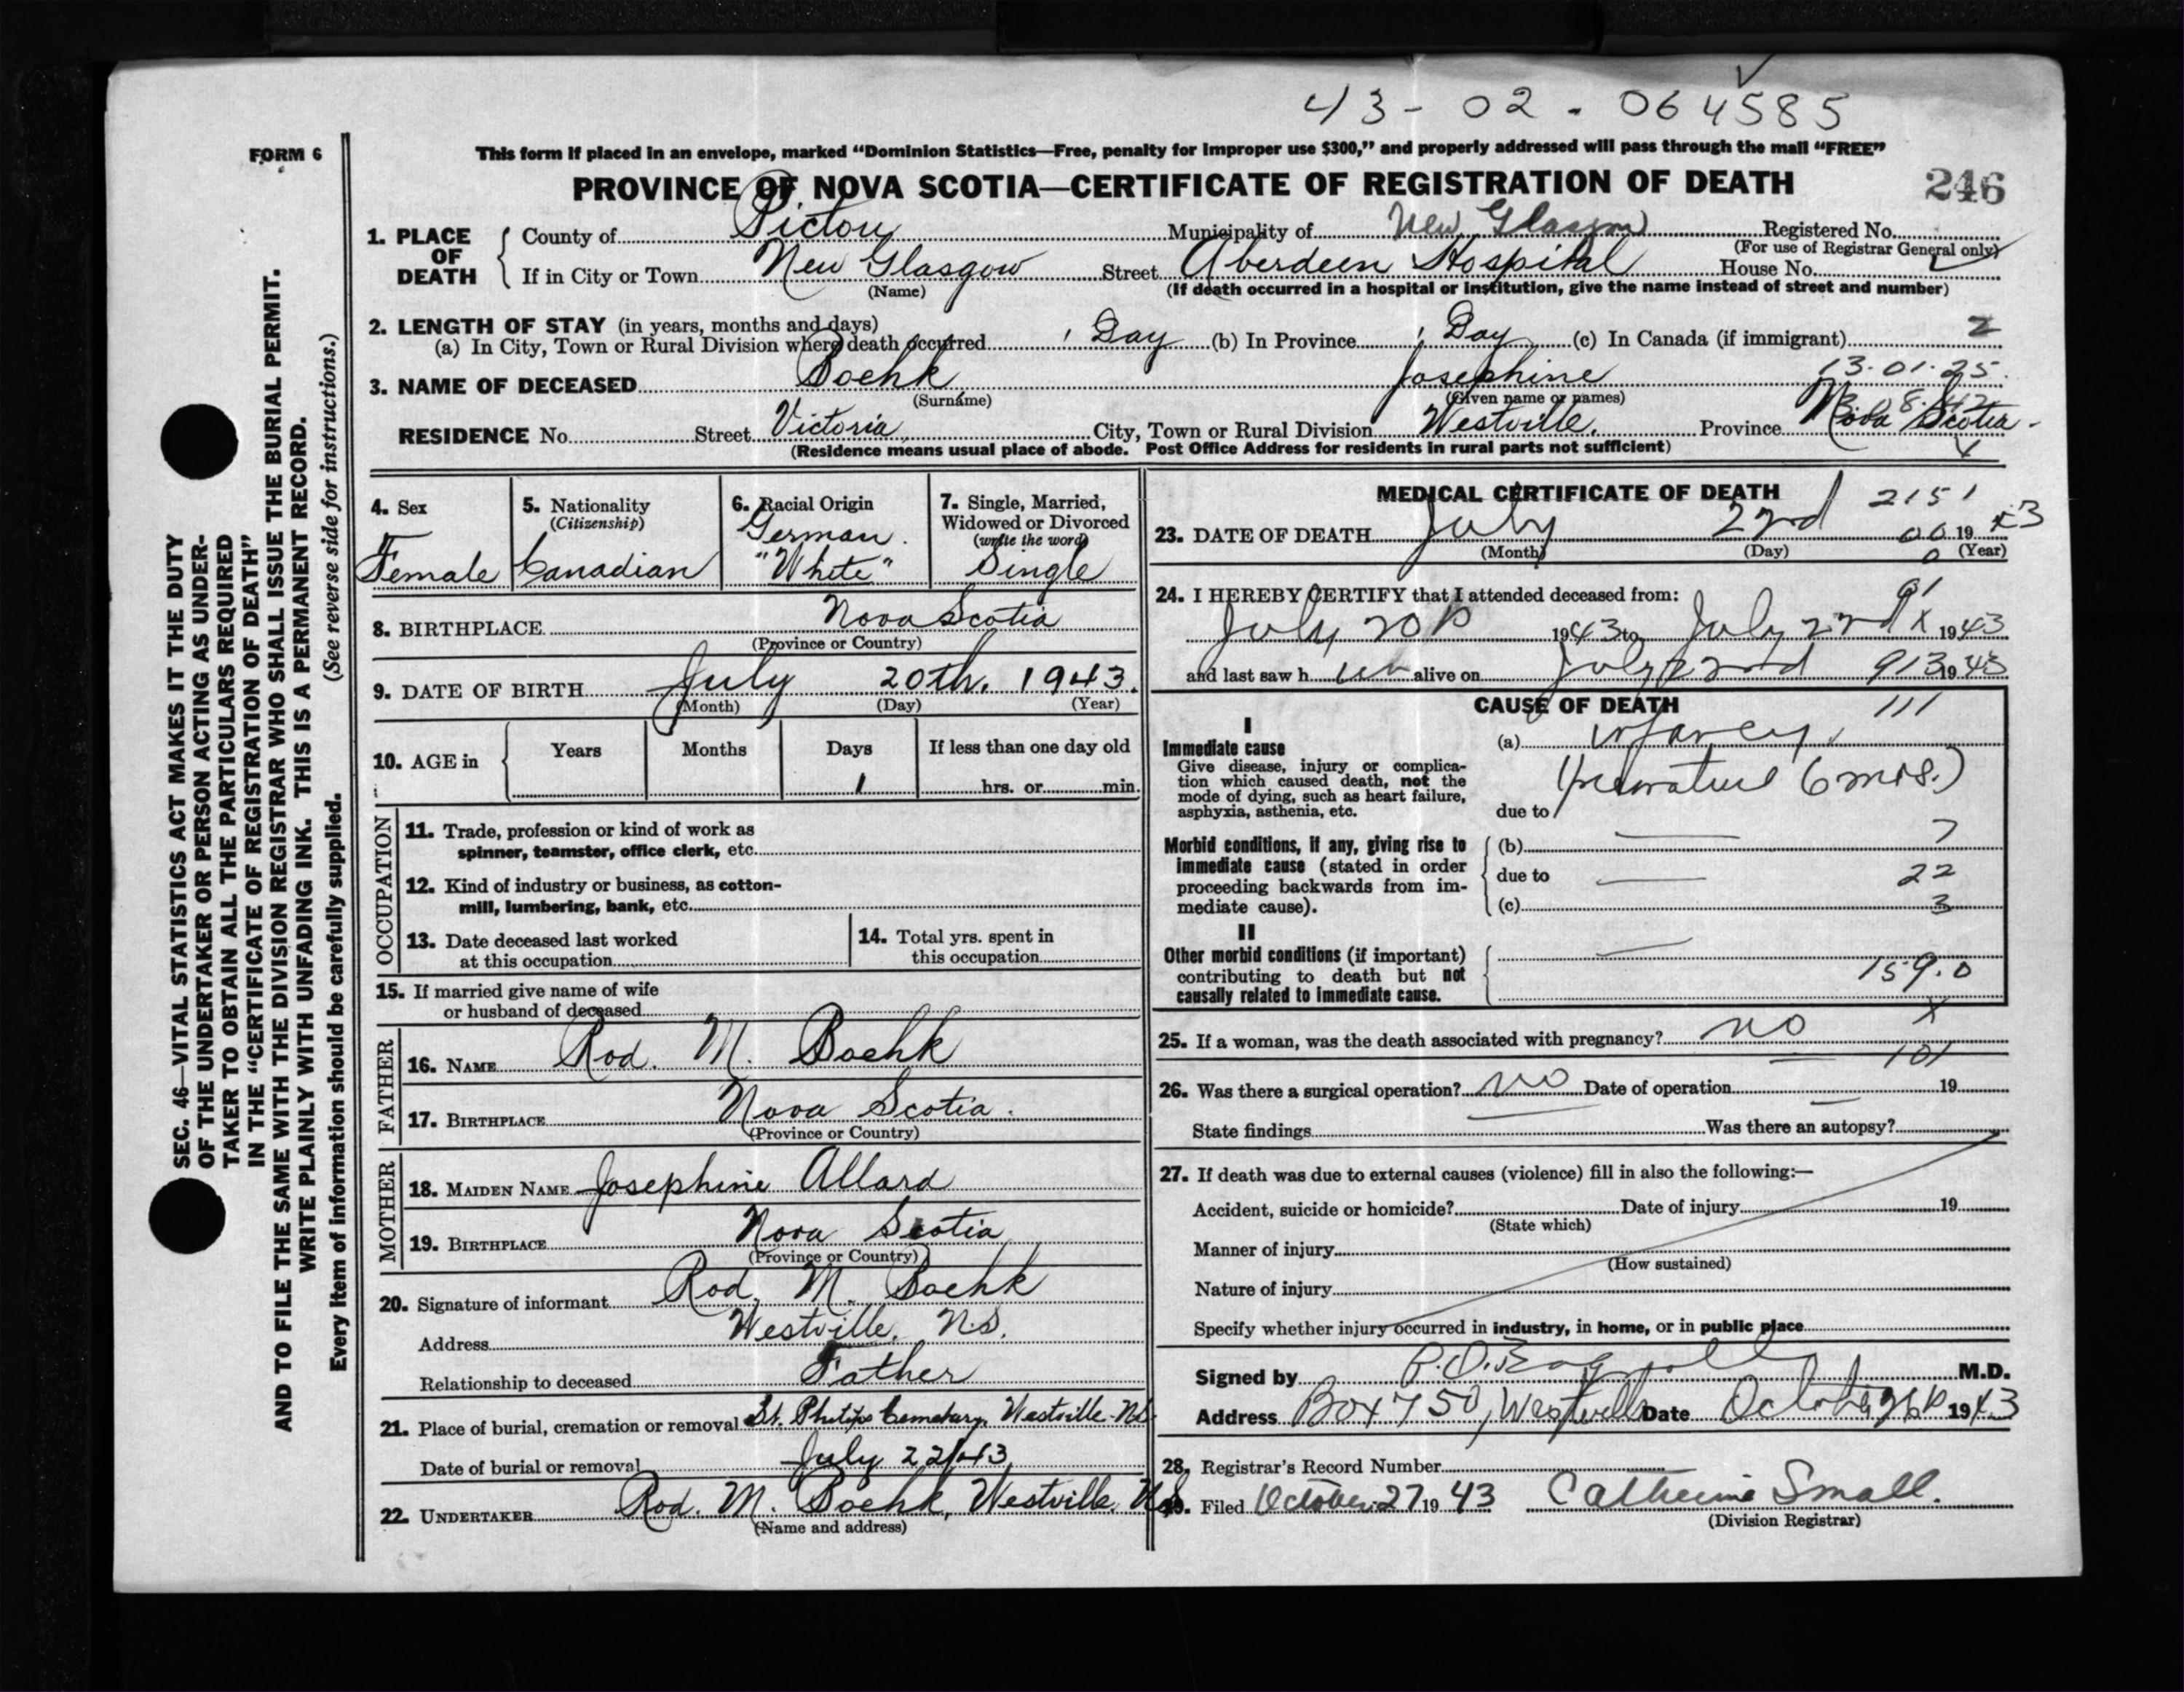 43-02-064585
FORM 6
This form if placed in an envelope, marked “Dominion Statistics—Free, penalty for improper use $300,” and properly addressed will pass through the mail “FREE”
PROVINCE OF NOVA SCOTIA—CERTIFICATE OF REGISTRATION OF DEATH
246
1. PLACE OF DEATH
County of Pictou Municipality of New Glasgow Registered No.
(For use of Registrar General only)
If in City or Town New Glasgow Street Aberdeen Hospital House No.
(Name) (If death occurred in a hospital or institution, give the name instead of street and number)
2. LENGTH OF STAY (in years, months and days)
(a) In City, Town or Rural Division where death occurred 1 Day (b) In Province 1 Day (c) In Canada (if immigrant) 2
13.01.25
3. NAME OF DECEASED Boehk Josephine
(Surname) (Given name or names)
RESIDENCE No. Street Victoria, City, Town or Rural Division Westville, Province Nova Scotia
(Residence means usual place of abode. Post Office Address for residents in rural parts not sufficient)
4. Sex
Female
5. Nationality
(Citizenship)
Canadian
6. Racial Origin
German.
"White"
7. Single, Married, Widowed or Divorced
(write the word)
Single
8. BIRTHPLACE Nova Scotia
(Province or Country)
9. DATE OF BIRTH July 20th, 1943.
(Month) (Day) (Year)
10. AGE in
Years Months Days If less than one day old
1 hrs. or min.
OCCUPATION
11. Trade, profession or kind of work as
spinner, teamster, office clerk, etc.
12. Kind of industry or business, as cotton-
mill, lumbering, bank, etc.
13. Date deceased last worked
at this occupation
14. Total yrs. spent in
this occupation
15. If married give name of wife
or husband of deceased
FATHER
16. NAME Rod. M. Boehk
17. BIRTHPLACE Nova Scotia.
(Province or Country)
MOTHER
18. MAIDEN NAME Josephine Allard
19. BIRTHPLACE Nova Scotia
(Province or Country)
20. Signature of informant Rod. M. Boehk
Address Westville, N.S.
Relationship to deceased Father
21. Place of burial, cremation or removal St. Philips Cemetary, Westville N.S.
Date of burial or removal July 22/43
22. UNDERTAKER Rod. M. Boehk, Westville, N.S.
(Name and address)
MEDICAL CERTIFICATE OF DEATH
2151
23. DATE OF DEATH July 22nd 1943
(Month) (Day) (Year)
24. I HEREBY CERTIFY that I attended deceased from:
July 20 1943 to July 22nd 1943
and last saw h alive on July 22nd 1943
913
CAUSE OF DEATH
111
I
Immediate cause
Give disease, injury or complica-
tion which caused death, not the
mode of dying, such as heart failure,
asphyxia, asthenia, etc.
(a) infancy
due to (premature 6 mos.)
Morbid conditions, if any, giving rise to
immediate cause (stated in order
proceeding backwards from im-
mediate cause).
(b) 7
due to 22
(c) 3
II
Other morbid conditions (if important)
contributing to death but not
causally related to immediate cause.
159.0
25. If a woman, was the death associated with pregnancy? no
101
26. Was there a surgical operation? no Date of operation 19
State findings Was there an autopsy?
27. If death was due to external causes (violence) fill in also the following:—
Accident, suicide or homicide? Date of injury 19
(State which)
Manner of injury
(How sustained)
Nature of injury
Specify whether injury occurred in industry, in home, or in public place
Signed by M.D.
Address Box 750, Westville Date October 26 1943
28. Registrar's Record Number
29. Filed October 27 1943 Catherine Small.
(Division Registrar)
SEC. 46—VITAL STATISTICS ACT MAKES IT THE DUTY
OF THE UNDERTAKER OR PERSON ACTING AS UNDER-
TAKER TO OBTAIN ALL THE PARTICULARS REQUIRED
IN THE “CERTIFICATE OF REGISTRATION OF DEATH”
AND TO FILE THE SAME WITH THE DIVISION REGISTRAR WHO SHALL ISSUE THE BURIAL PERMIT.
WRITE PLAINLY WITH UNFADING INK. THIS IS A PERMANENT RECORD.
Every item of information should be carefully supplied. (See reverse side for instructions.)